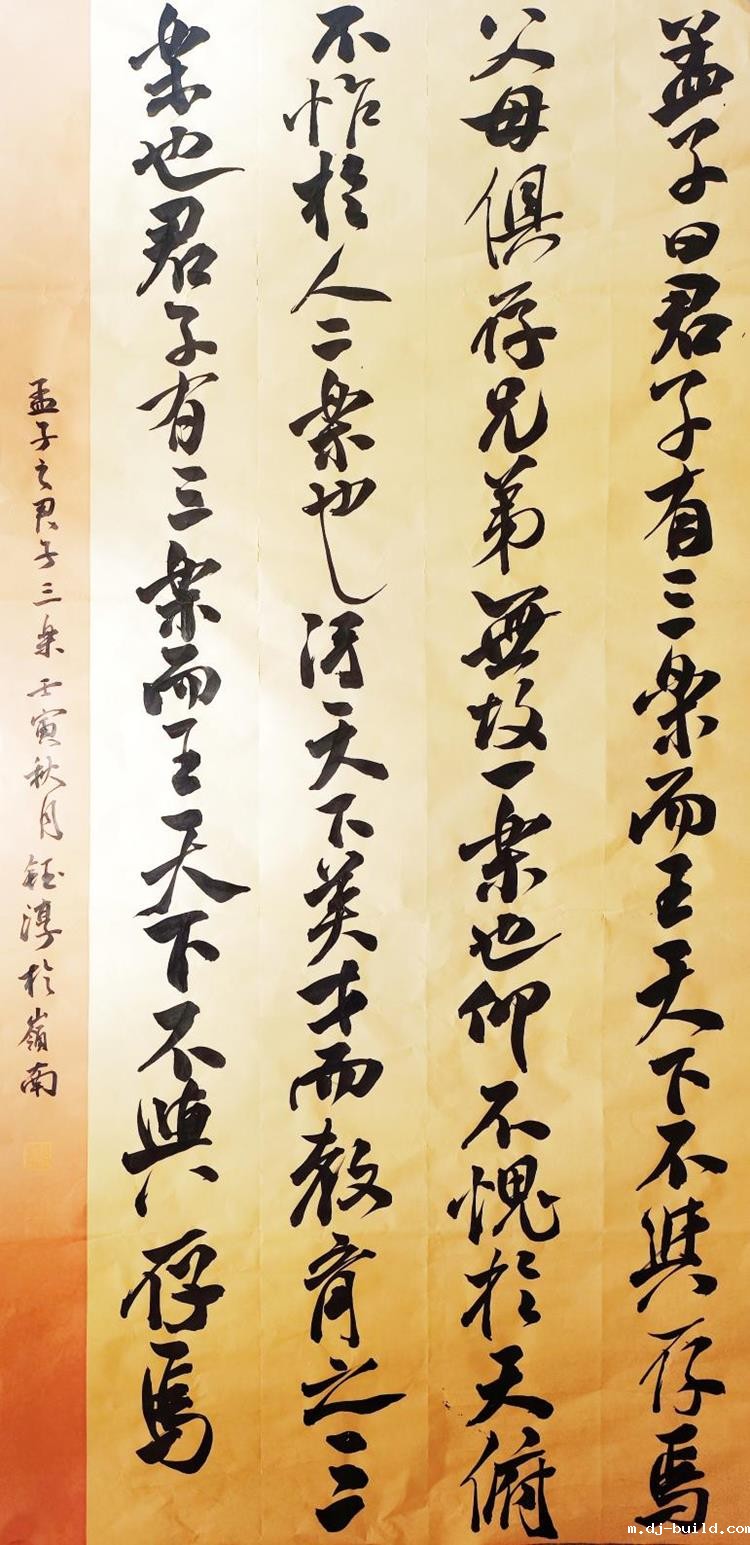 孟子曰君子有三樂而王天下不與存焉
父母俱存兄弟無故一樂也仰不愧於天俯
不怍於人二樂也得天下英才而教育之三
樂也君子有三樂而王天下不與存焉
孟子之君子三樂 壬寅秋月 鈺淳於嶺南
m.dj-build.com